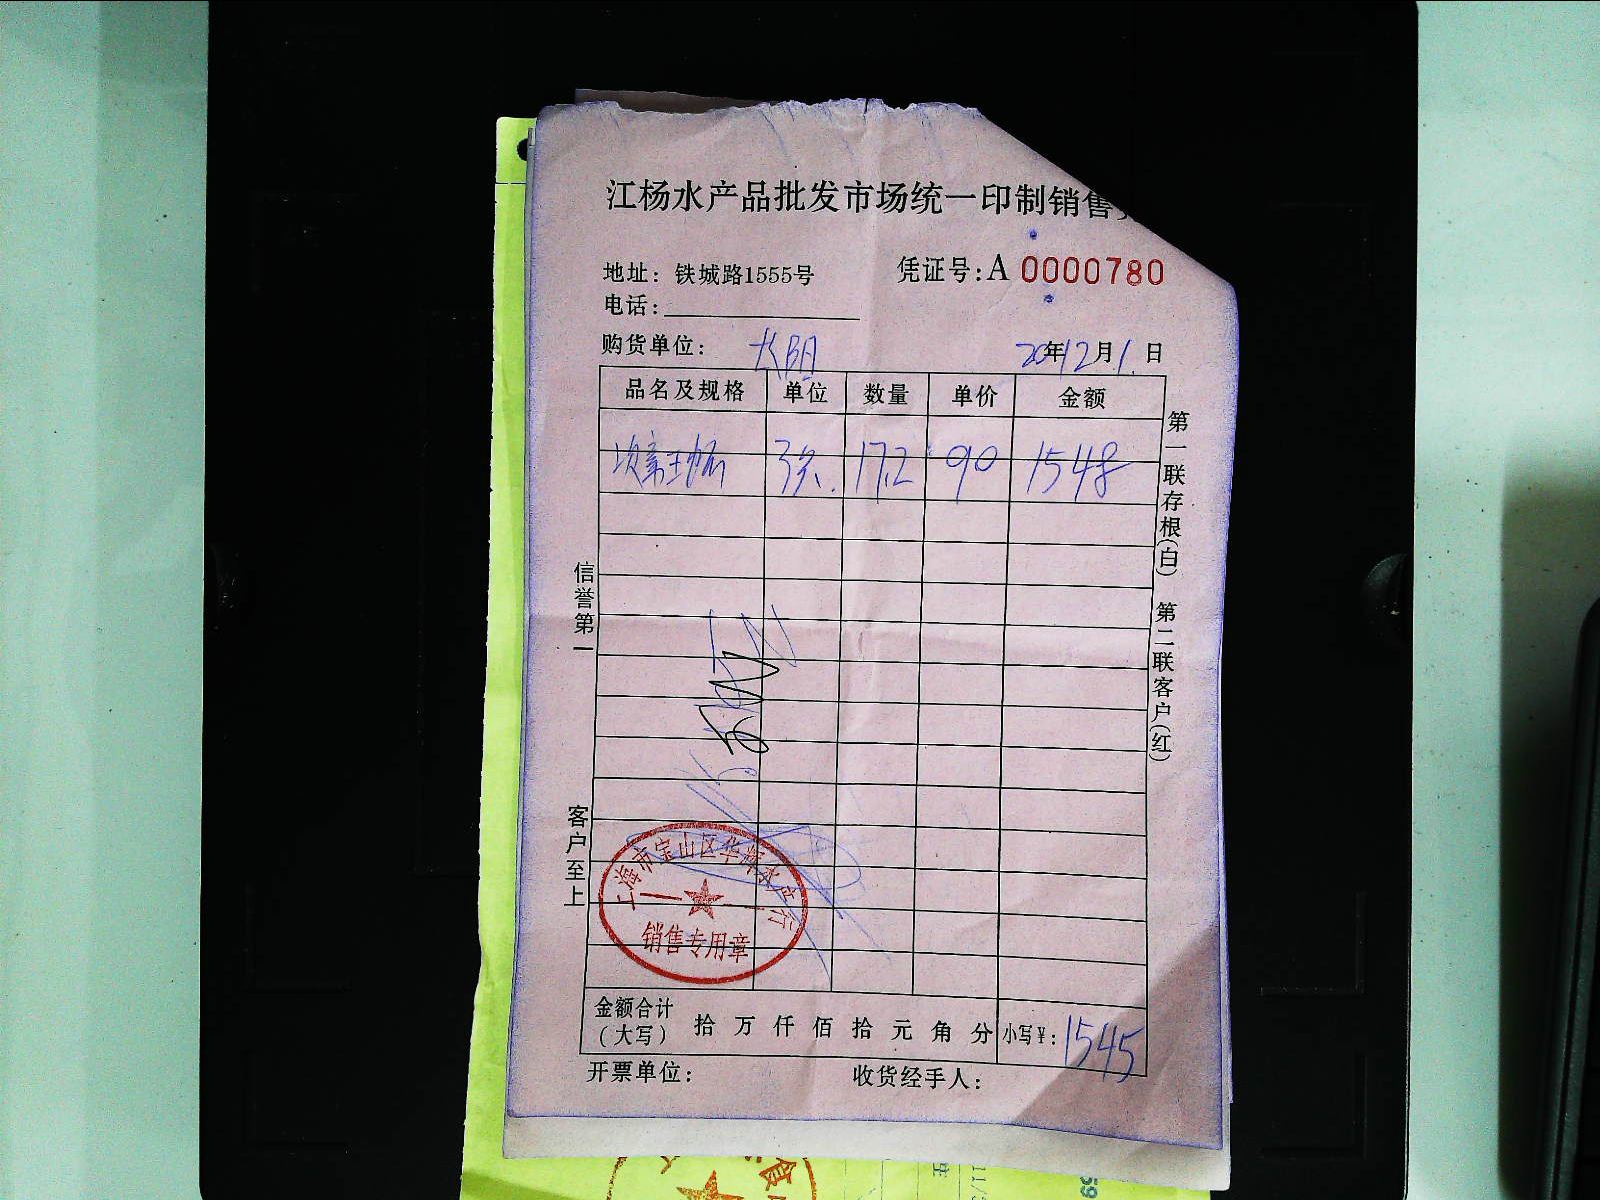 江杨水产品批发市场统一印制销售
地址：铁城路1555号
凭证号：A 0000780
电话：
购货单位： 长阳
20年12月1日
品名及规格 单位 数量 单价 金额
17.2 90 1548
第一联存根（白） 第二联客户（红）
信誉第一
客户至上
上海市宝山区华辉水产行
销售专用章
金额合计（大写） 拾 万 仟 佰 拾 元 角 分 小写￥：1545
开票单位： 收货经手人：